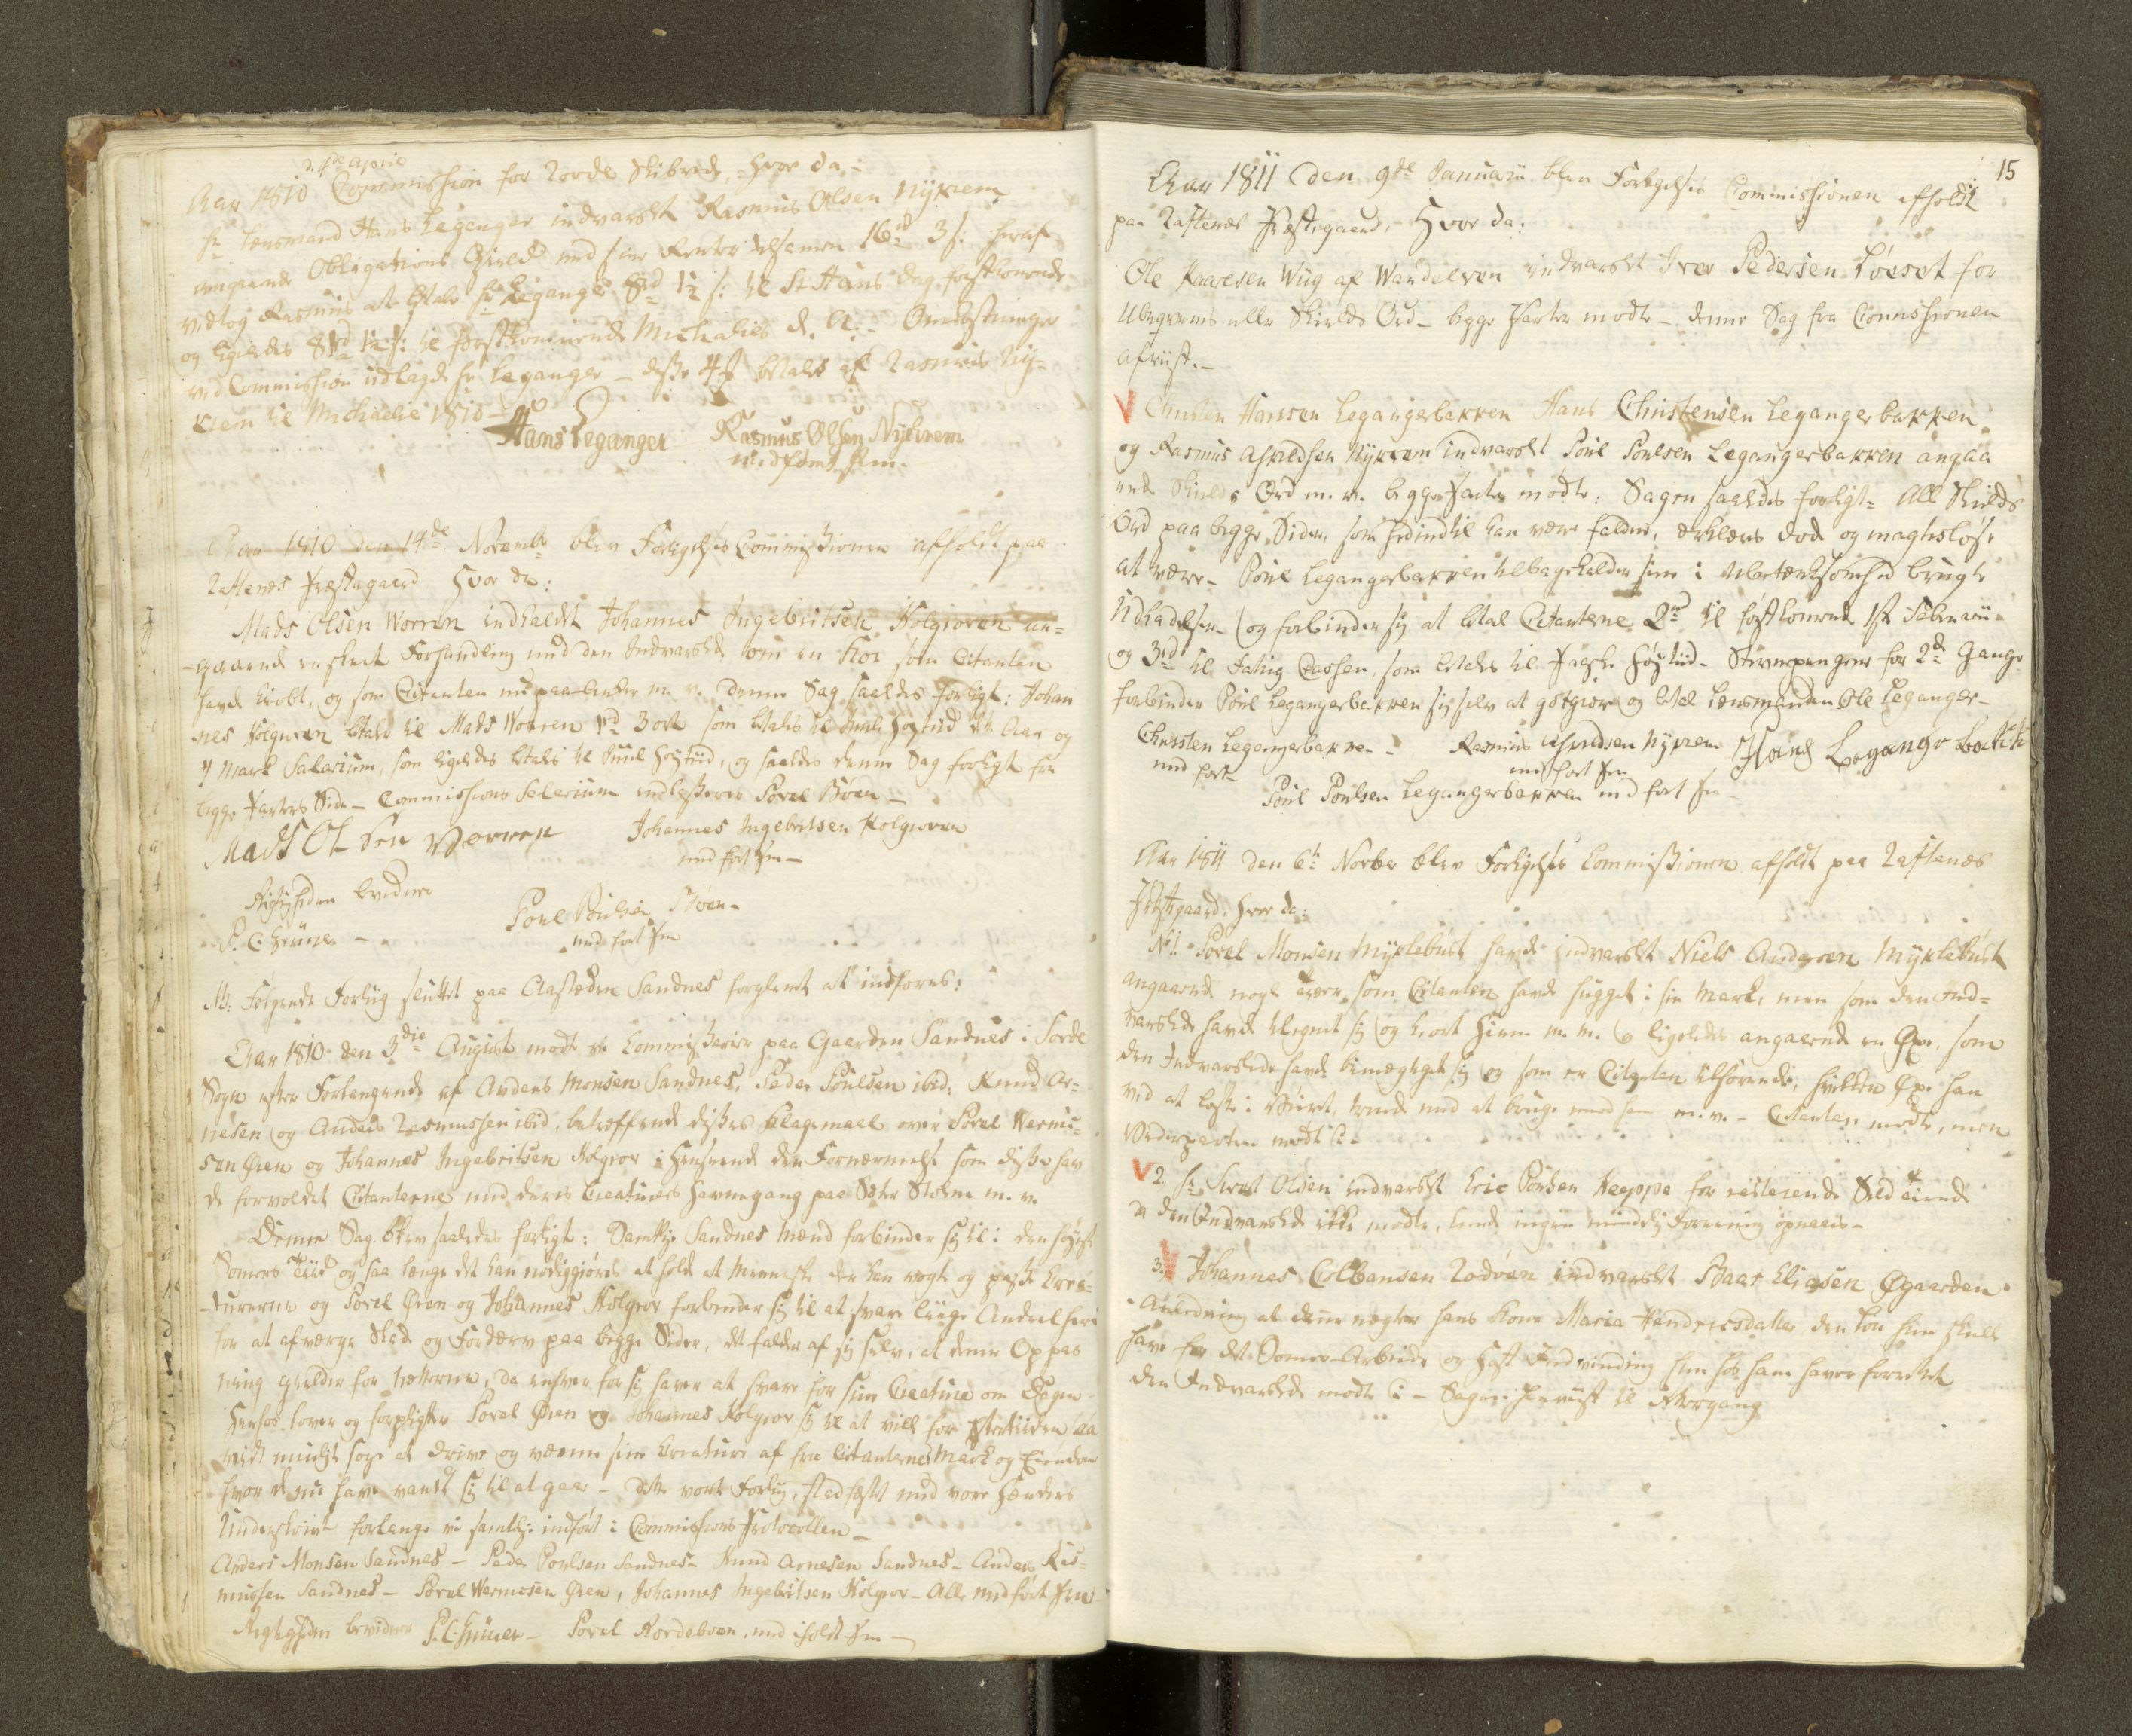 d. 4de April
Aar 1810 Commission for Rovde Skibrede, hvor da:
Sr Lensmand Hans Leganger indvarslet Rasmus Olsen Nykrem
angaaende Obligations Gield med sine Renter tilsamen 16rd 3 s: hvoraf
vedtog Rasmus at betale Sr Leganger 8rd 1½ s: til St Hans Dag førstkomende
og ligeledes 8rd 1½ s: til førstkommende Michaelis d. A: - Omkostninger
ved Commission udlagde Sr Leganger - disse 4 betales af Rasmus Ny-
krem til Michaelis 1810 -
Hans Leganger Rasmus Olsen Nykrem
med ført Pen.
Aar 1810 den 14de Novembr blev Forligelses Commissionen afholdt paa
Raftenæs Præstegaard Hvor da:
Mads Olsen Worren indkaldt Johannes Ingebritsen Holgroven an-
-gaaende en skeet Forhandling med den Indvarslede om en Koe som Citanten
havde kiøbt, og som Citanten nu paaanker m. v. Denne Sag saaledes forligt: Johan
nes Holgroven betaler til Mads Worren 1rd 3 ort som betales til Juule Høytid dette Aar og
4 Mark Salarium, som ligeledes betales til Juul Høytiid, og saaledes denne Sag forligt fra
begge Parters Side - Commissions Salarium Povel Bøen -
Mads Ol Sen Worren Johannes Ingebritsen Holgroven
med ført Pen -
Rigtigheden bevidner
P. C. Grüner - Poul Poulsen Bøen -
medført Pen
NB: Følgende Forliig sluttet paa Aastæden Sandnes forglemt at indføres:
Aar 1810 den 3die August mødte vi Commissairer paa Gaarden Sandnes i Sorde
Sogn efter Forlangende af Anders Monsen Sandnes, Peder Poulsen ibid, Knud Ar-
nesen og Anders Rasmussen ibid, betreffende disses Klagemaal over Povel Wermu-
sen Øren og Johannes Ingebritsen Holgrov i Henseende den Fornærmelse som disse hav
de forvoldet Citanterne med deres Creaturers Havnegang paa Sæter Stolene m. v.
Denne Sag blev saaledes forligt: Samtlige Sandnes Mænd forbinder sig til i den høyeste
Somers Tiid og saa længe det kan nødiggiøres at holde et Menneske der kan vogte og passe Krea-
-turerne og Povel Øren og Johannes Holgrov forbinder sig til at svare liige Andeel heri
for at afværge Skade og Fordærv paa begge Sider, det falder af sig selv, at denne Oppas
ning gielder for Nætterne, da enhver for sig haver at svare for sine Creature om Dagen -
Herhos lover og forpligter Povel Øren og Johannes Holgrov sig til at ville for Eftertiiden saa
vidt muligt søge at drive og vænne sine Creature af fra Citanternes Mark og Eiendom
hvor de nu have vandt sig til at gaae - Dette vort Forliig, stadfæstet med vore Hænders
Underskrivt forlange vi samtlige indført i Commissions Protocollen -
Anders Monsen Sandnes - Peder Poulsen Sandnes - Knud Arnesen Sandnes - Anders Ras-
mussen Sandnes - Povel Wermusen Øren, Johannes Ingebritsen Holgrov - Alle med ført Pen
Rigtigheden bevidner P. C. Grüner - Povel Rovdeboen, med iholdt Pen -
15
Aar 1811 Den 9de Januarii blev Forligelses Commissionen afholdt
paa Raftenæs Præstegaard, Hvor da:
Ole Kaaresen Wiig af Wandelven indvarslet Iver Pedersen Løeset for
Ubeqvems eller Skields Ord - begge Parter mødte - denne Sag fra Commissionen
afviist. -
Christen Hansen Legangerbakken Hans Christensen Legangerbakken
og Rasmus Asfieldsen Nykrem indvarslet Poul Poulsen Legangerbakken angaa
ende Skields Ord m. v. begge Parter mødte: Sagen saaledes forligt - All Skields
Ord paa begge Sider, som hidindtil kan være faldne, erklæres død og magtesløse
at være - Poul Legangerbakken tilbagekalder sine i Ubetænksomhed brugte
Udladelser - og forbinder sig at betale Citanterne 2rd til førstkomende 1ste Februarii
og 3rd til Fattig Cassen som betales til Paaske Høytiid - Stevnepengene for 2de Gange
forbinder Poul Legangerbakken sig selv at godtgiøre og betale Lensmanden Ole Leganger -
Christen Legangerbakken - Rasmus Asfieldsen Nykrem Hans Legange backen
med ført med ført Pen
Poul Poulsen Legangerbakken med ført Pen -
Aar 1811 den 6te Novbr blev Forligelses Commissionen afholdt paa Raftenæs
Præstegaard, hvor da:
No 1. Povel Monsen Myklebust havde indvarslet Niels Andersen Myklebust
angaaende nogle Træer, som Citanten havde hugget i sin Mark, men som den Ind-
varslede havde tilegnet sig og kiørt hiem m. m. og ligeledes angaaende en Øxe, som
den Indvarslede havde bemægtiget sig og som er Citanten tilhørende, hvilken Øxe han
ved at bruge m. v. - Citanten mødte, men
Vederparten mødte ei -
2. Sr Knut Olsen indvarslet Eric Poulsen Keyppe for resterende Sild Tiende
da den Indvarslede ikke mødte, kunde ingen mindelig Forening opnaaes -
3. Johannes Colbansen Rodøen indvarslet Baar Eliasen Øgaarden
- Anledning at denne nægter hans Kone Maria Hendricsdatter den Løn hun skulle
have for det Somer-Arbeide og Høst Indvinding hun hos ham haver forrettet
den Indvarslede mødte ei - Sagen henviist til Rettergang